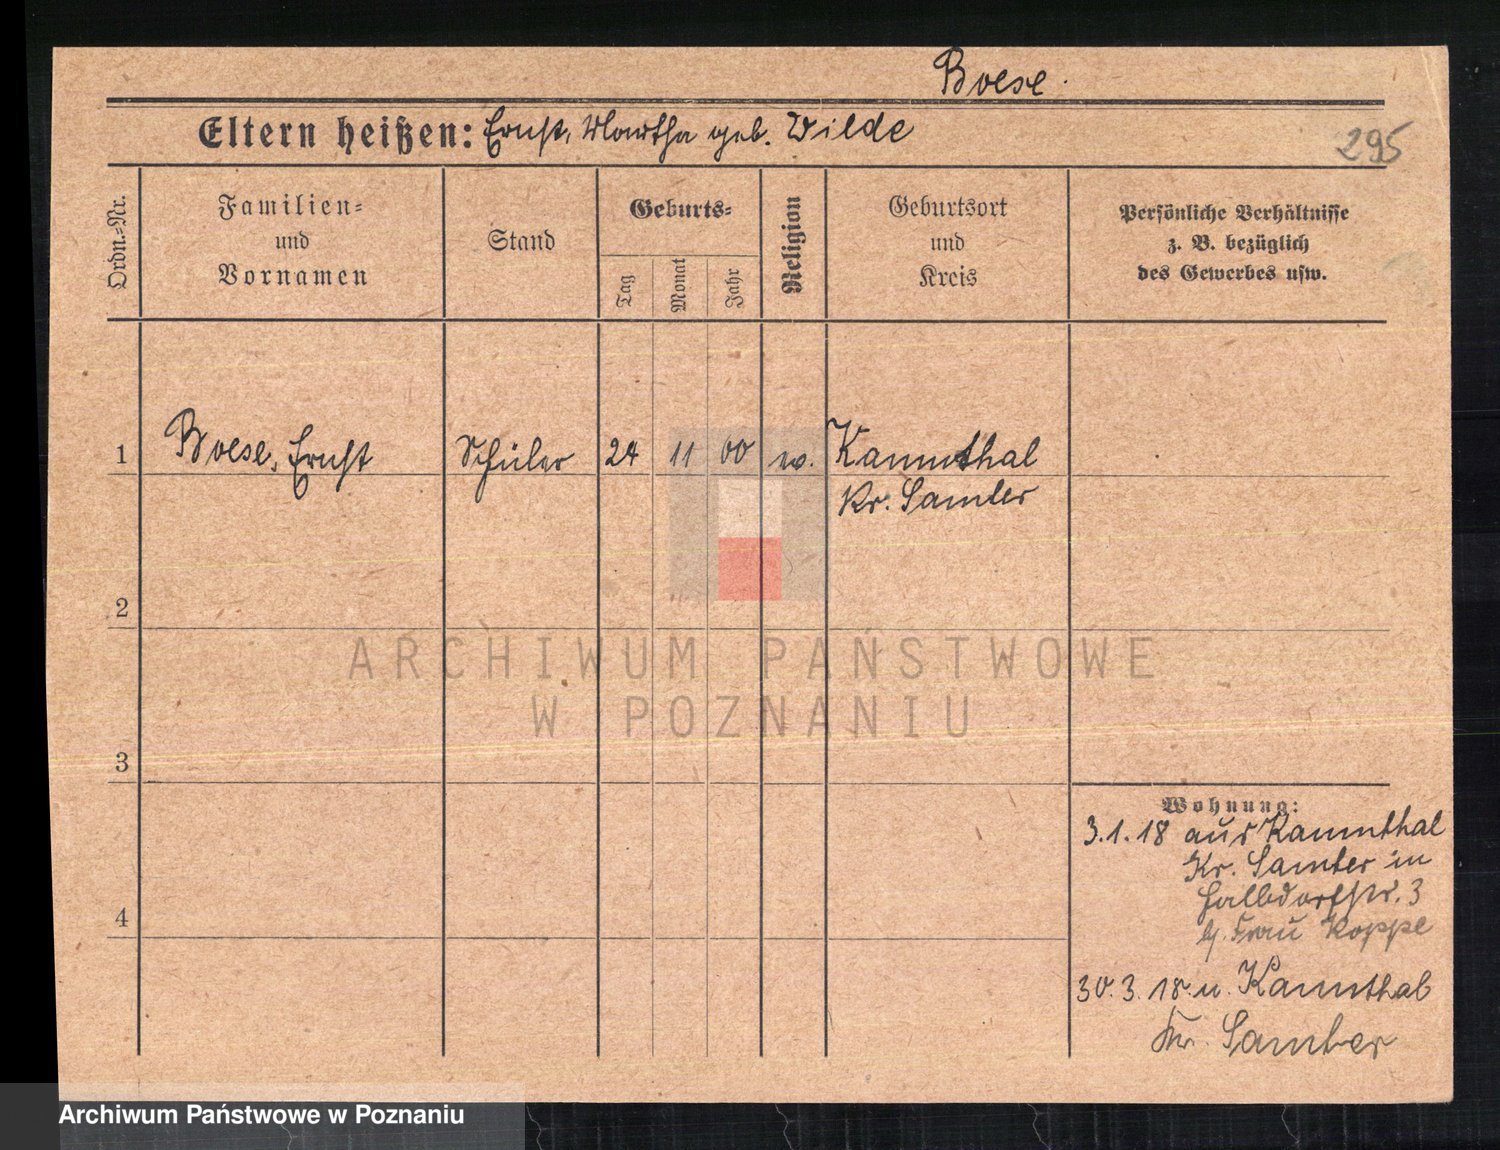 Boese.
Eltern heißen: Ernst, Martha geb. Wilde
295
Ordn.-Nr.
Familien-
und
Vornamen
Stand
Geburts-
Tag
Monat
Jahr
Religion
Geburtsort
und
Kreis
Persönliche Verhältnisse
z. B. bezüglich
des Gewerbes usw.
1 Boese, Ernst Schüler 24 11 00 ev. Kammthal
Kr. Samter
2
3
4
Wohnung:
3.1.18 aus Kammthal
Kr. Samter in
Halbdorfstr. 3
b. Frau Koppe
30.3.18 n. Kammthal
Kr. Samter
ARCHIWUM PAŃSTWOWE
W POZNANIU
Archiwum Państwowe w Poznaniu